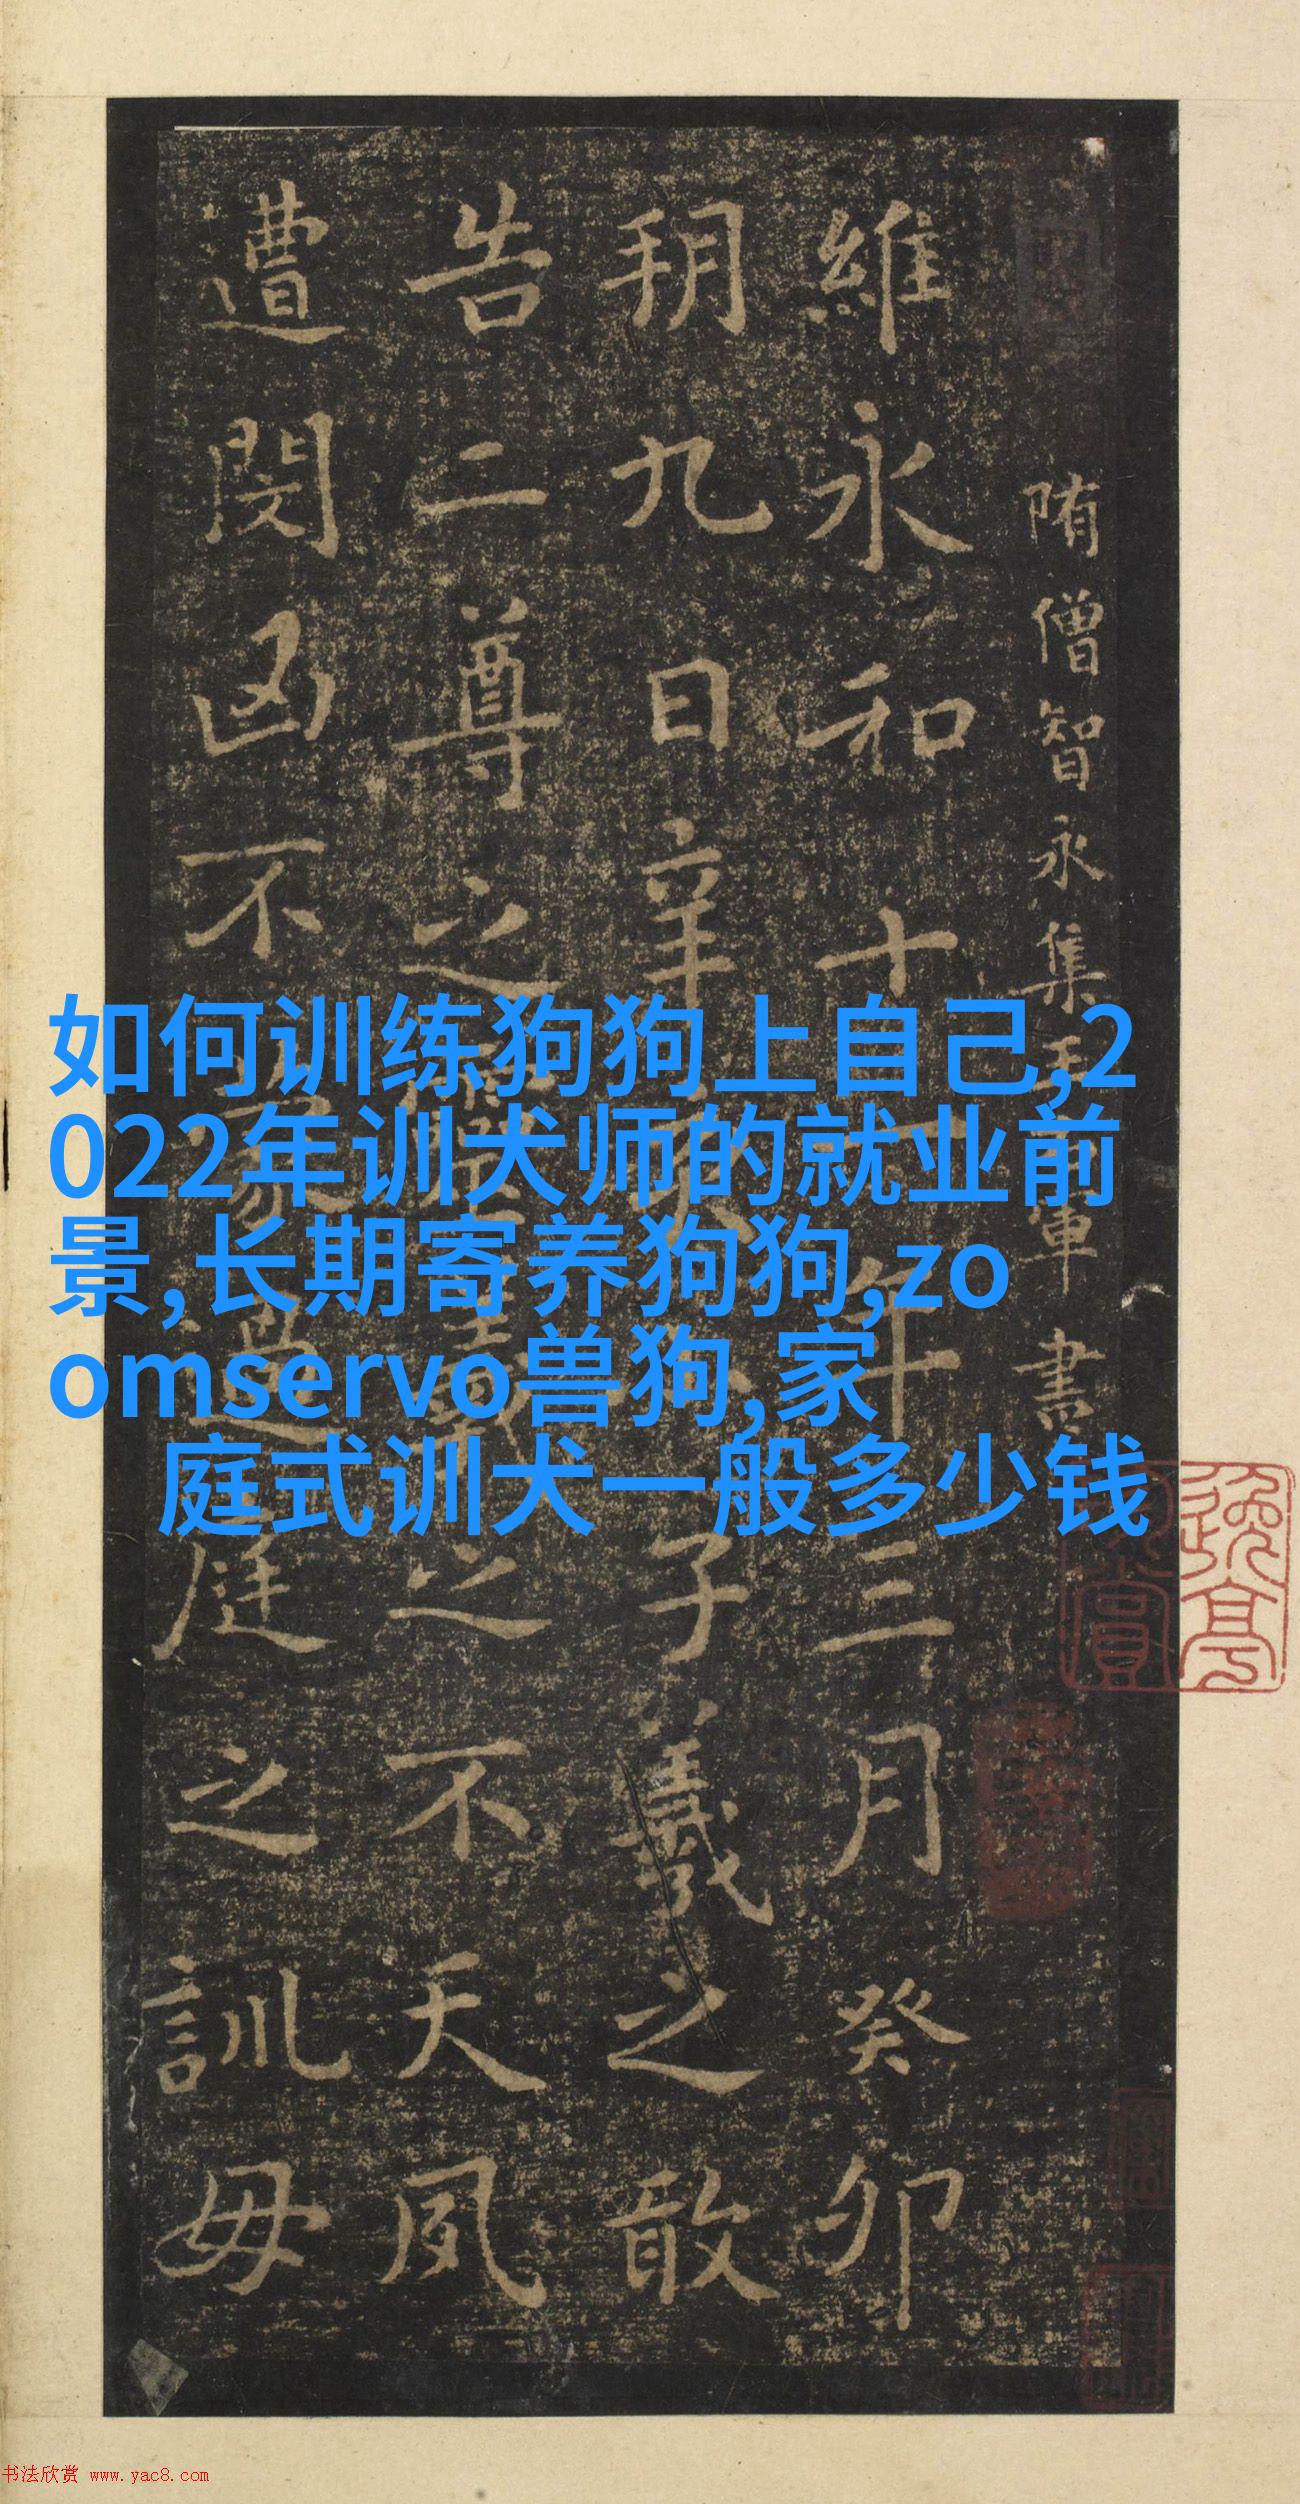 隋僧智永集王右軍書
維永和十一年三月癸卯
朔九日辛亥小子羲之敢
告二尊之靈羲之不天夙
遭閔凶不蒙過庭之訓毋
如何训练狗狗上自己,2
022年训犬师的就业前
景,长期寄养狗狗,zo
omservo兽狗,家
庭式训犬一般多少钱
书法欣赏 www.yac8.com